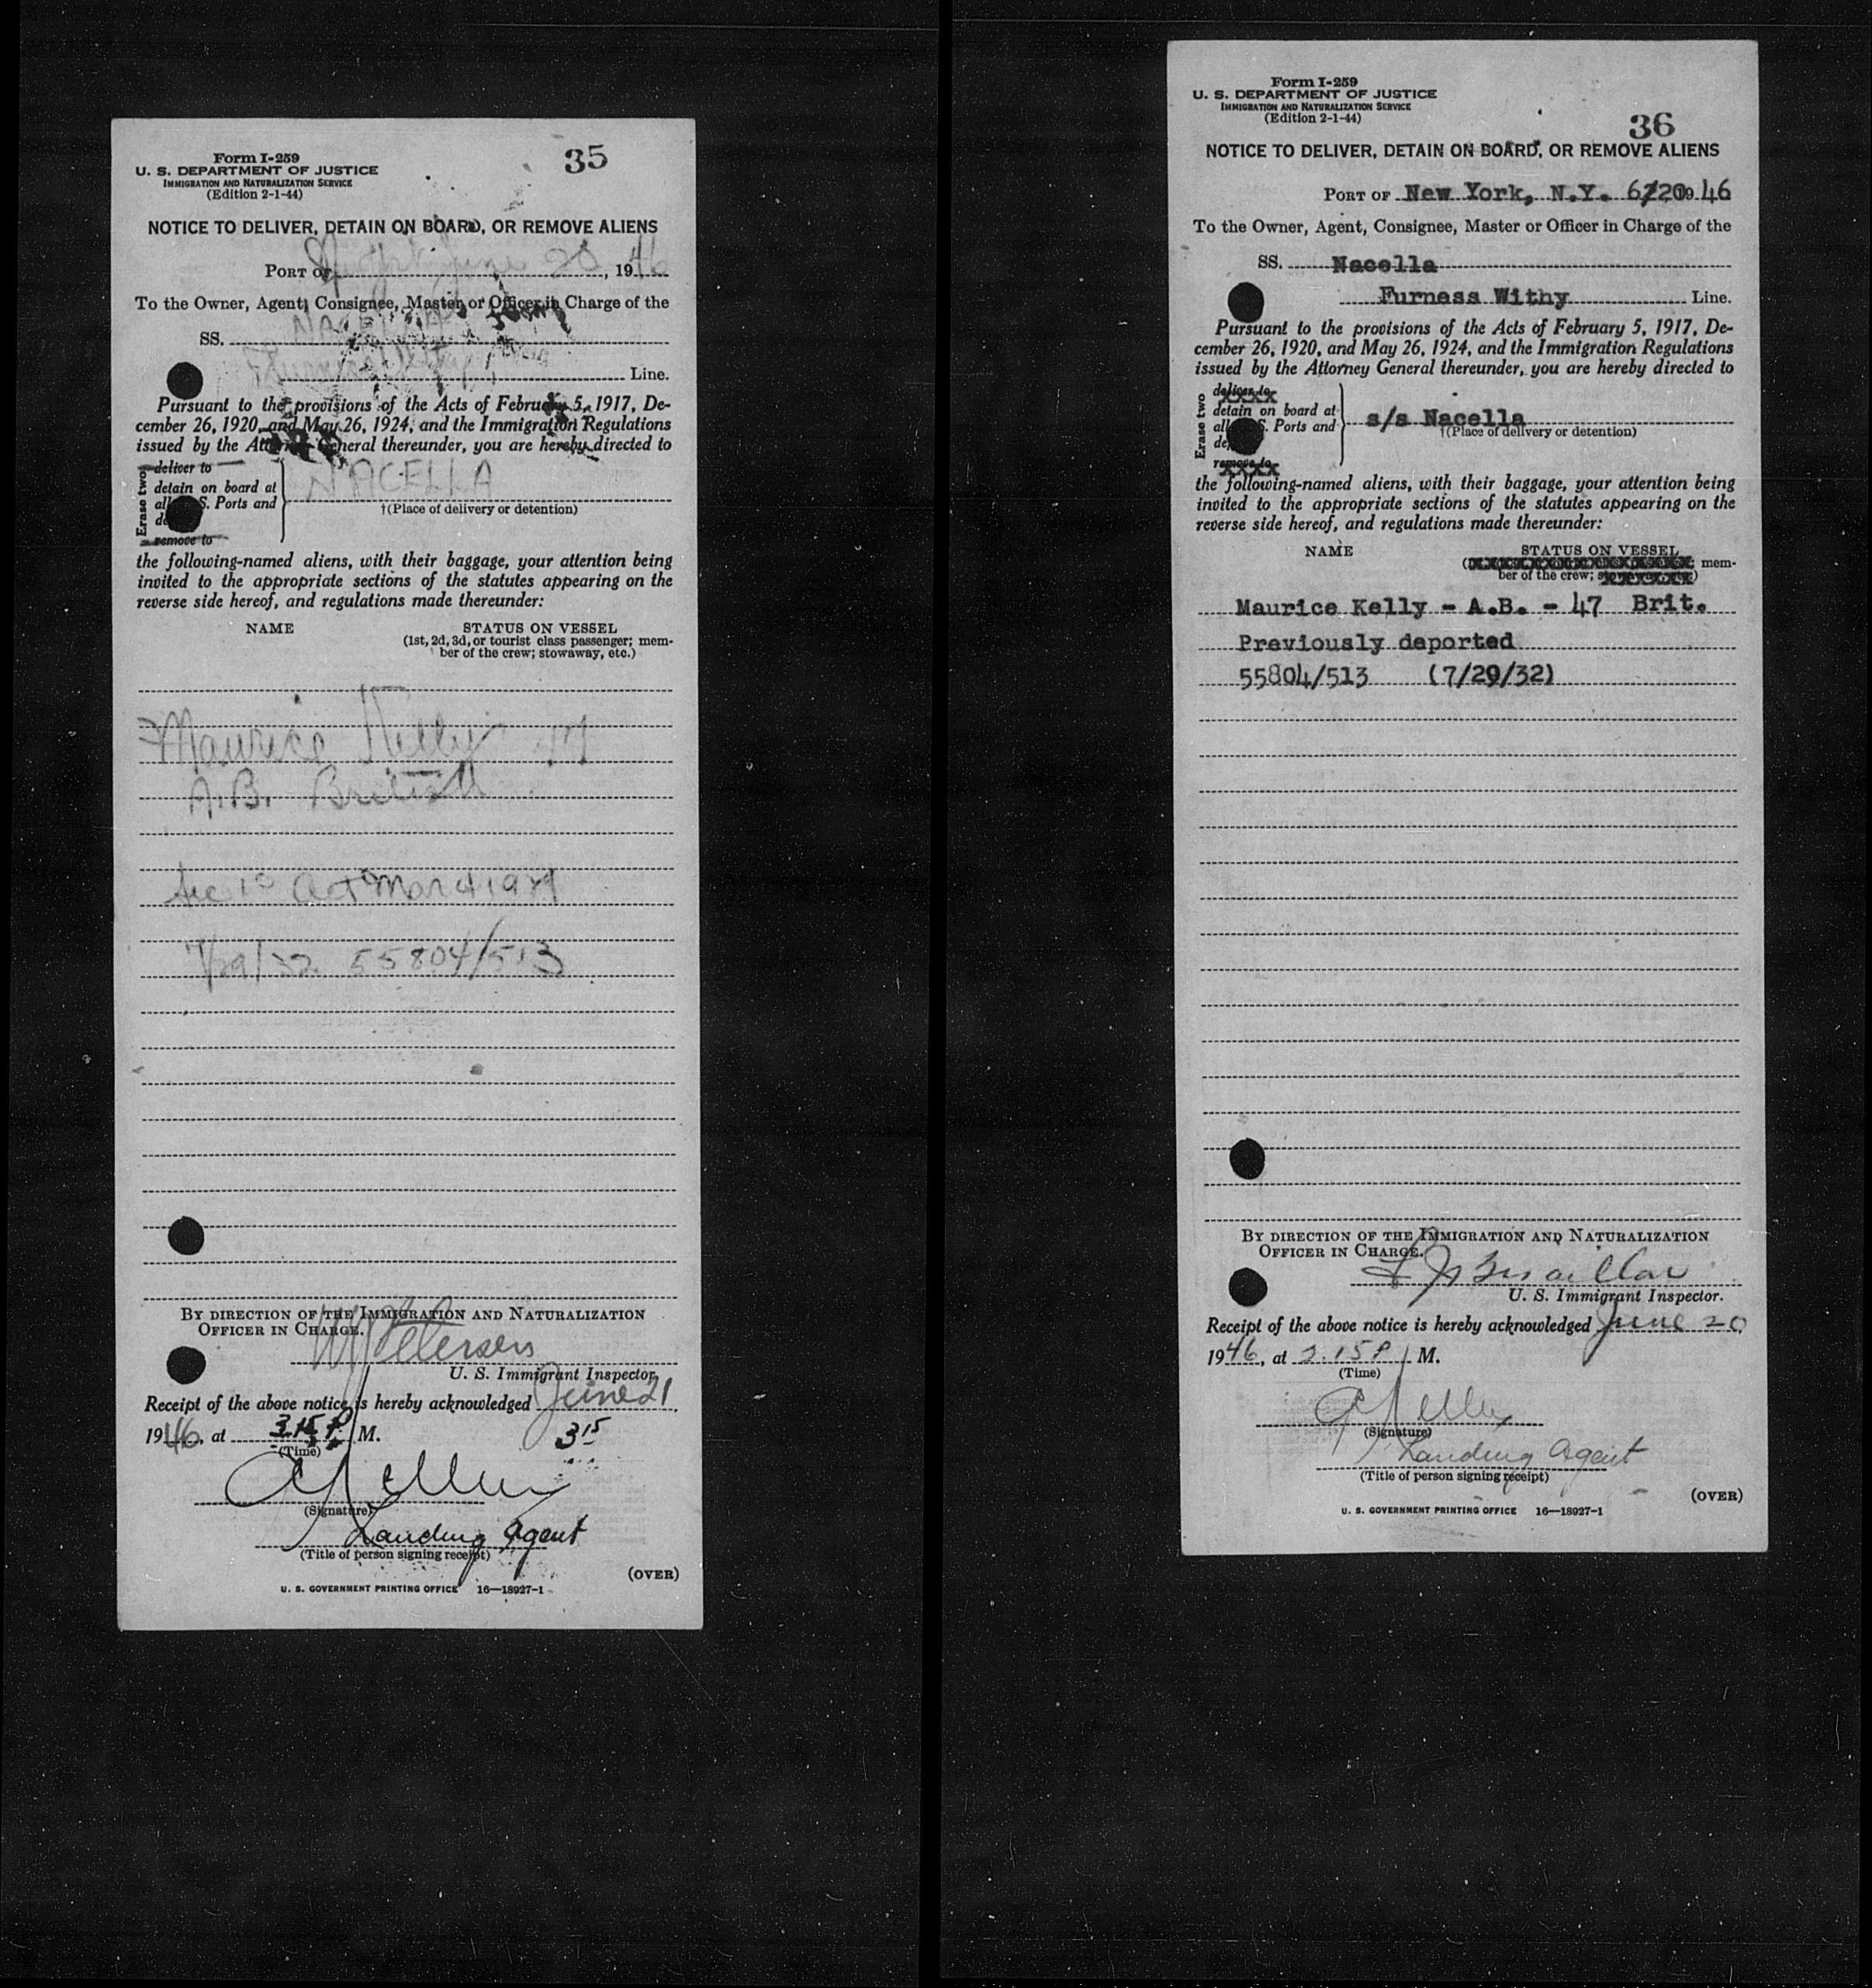 Form I-259
U. S. DEPARTMENT OF JUSTICE
IMMIGRATION AND NATURALIZATION SERVICE
(Edition 2-1-44)
35
NOTICE TO DELIVER, DETAIN ON BOARD, OR REMOVE ALIENS
PORT OF June 20, 1946
To the Owner, Agent, Consignee, Master or Officer in Charge of the
SS. NACELLA
Furness Withy Line.
Pursuant to the provisions of the Acts of February 5, 1917, De-
cember 26, 1920, and May 26, 1924, and the Immigration Regulations
issued by the Attorney General thereunder, you are hereby directed to
Erase two
deliver to
detain on board at
all S. Ports and
NACELLA
†(Place of delivery or detention)
remove to
the following-named aliens, with their baggage, your attention being
invited to the appropriate sections of the statutes appearing on the
reverse side hereof, and regulations made thereunder:
NAME STATUS ON VESSEL
(1st, 2d, 3d, or tourist class passenger; mem-
ber of the crew; stowaway, etc.)
Maurice Kelly 47
A.B. British
Act Mar 4 1929
7/29/32 55804/513
BY DIRECTION OF THE IMMIGRATION AND NATURALIZATION
OFFICER IN CHARGE.
Petersen
U. S. Immigrant Inspector.
Receipt of the above notice is hereby acknowledged June 21,
1946, at 3.15 P. M. 3 15
(Time)
(Signature)
Landing Agent
(Title of person signing receipt)
(OVER)
U. S. GOVERNMENT PRINTING OFFICE 16—18927-1
Form I-259
U. S. DEPARTMENT OF JUSTICE
IMMIGRATION AND NATURALIZATION SERVICE
(Edition 2-1-44)
36
NOTICE TO DELIVER, DETAIN ON BOARD, OR REMOVE ALIENS
PORT OF New York, N.Y. 6/20 1946
To the Owner, Agent, Consignee, Master or Officer in Charge of the
SS. Nacella
Furness Withy Line.
Pursuant to the provisions of the Acts of February 5, 1917, De-
cember 26, 1920, and May 26, 1924, and the Immigration Regulations
issued by the Attorney General thereunder, you are hereby directed to
Erase two
deliver to
detain on board at
all S. Ports and
s/s Nacella
†(Place of delivery or detention)
remove to
the following-named aliens, with their baggage, your attention being
invited to the appropriate sections of the statutes appearing on the
reverse side hereof, and regulations made thereunder:
NAME STATUS ON VESSEL
mem-
ber of the crew; stowaway, etc.)
Maurice Kelly - A.B. - 47 Brit.
Previously deported
55804/513 (7/29/32)
BY DIRECTION OF THE IMMIGRATION AND NATURALIZATION
OFFICER IN CHARGE.
U. S. Immigrant Inspector.
Receipt of the above notice is hereby acknowledged June 20,
1946, at 3.15 P. M.
(Time)
(Signature)
Landing Agent
(Title of person signing receipt)
(OVER)
U. S. GOVERNMENT PRINTING OFFICE 16—18927-1